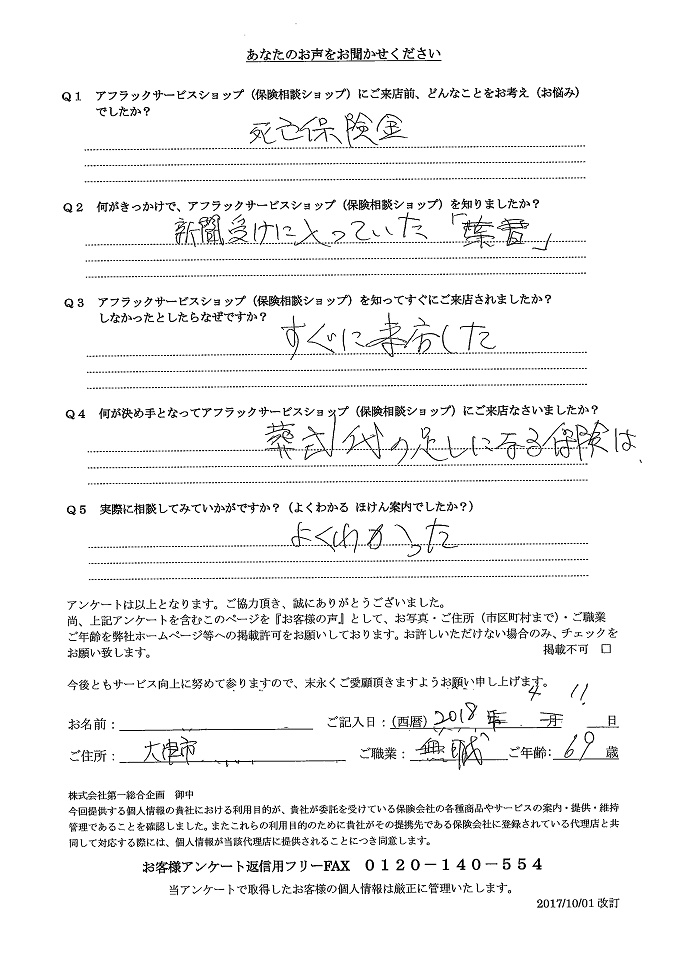 あなたのお声をお聞かせください
Q1 アフラックサービスショップ（保険相談ショップ）にご来店前、どんなことをお考え（お悩み）
でしたか？
死亡保険金
Q2 何がきっかけで、アフラックサービスショップ（保険相談ショップ）を知りましたか？
新聞受けに入っていた「葉書」
Q3 アフラックサービスショップ（保険相談ショップ）を知ってすぐにご来店されましたか？
しなかったとしたらなぜですか？
すぐに来店した
Q4 何が決め手となってアフラックサービスショップ（保険相談ショップ）にご来店なさいましたか？
葬式代の足しになる保険は、
Q5 実際に相談してみていかがですか？（よくわかる ほけん案内でしたか？）
よくわかった
アンケートは以上となります。ご協力頂き、誠にありがとうございました。
尚、上記アンケートを含むこのページを『お客様の声』として、お写真・ご住所（市区町村まで）・ご職業
ご年齢を弊社ホームページ等への掲載許可をお願いしております。お許しいただけない場合のみ、チェックを
お願い致します。 掲載不可 □
今後ともサービス向上に努めて参りますので、末永くご愛顧頂きますようお願い申し上げます。
お名前： ご記入日：（西暦）2018 年 4 月 11 日
ご住所： 大津市 ご職業： 無職 ご年齢： 69 歳
株式会社第一総合企画 御中
今回提供する個人情報の貴社における利用目的が、貴社が委託を受けている保険会社の各種商品やサービスの案内・提供・維持
管理であることを確認しました。またこれらの利用目的のために貴社がその提携先である保険会社に登録されている代理店と共
同して対応する際には、個人情報が当該代理店に提供されることにつき同意します。
お客様アンケート返信用フリーFAX 0120－140－554
当アンケートで取得したお客様の個人情報は厳正に管理いたします。
2017/10/01 改訂